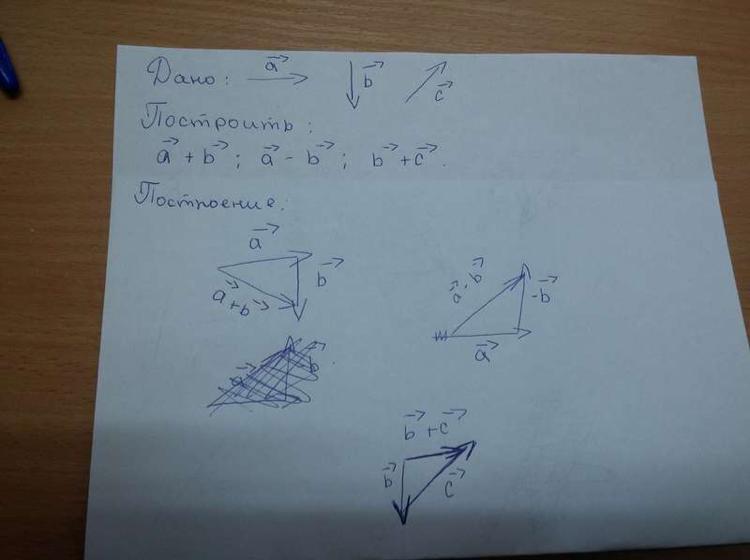 Дано: a b c
Построить:
a + b; a - b; b + c.
Построение:
a
b
a+b
a-b
-b
a
b + c
b
c